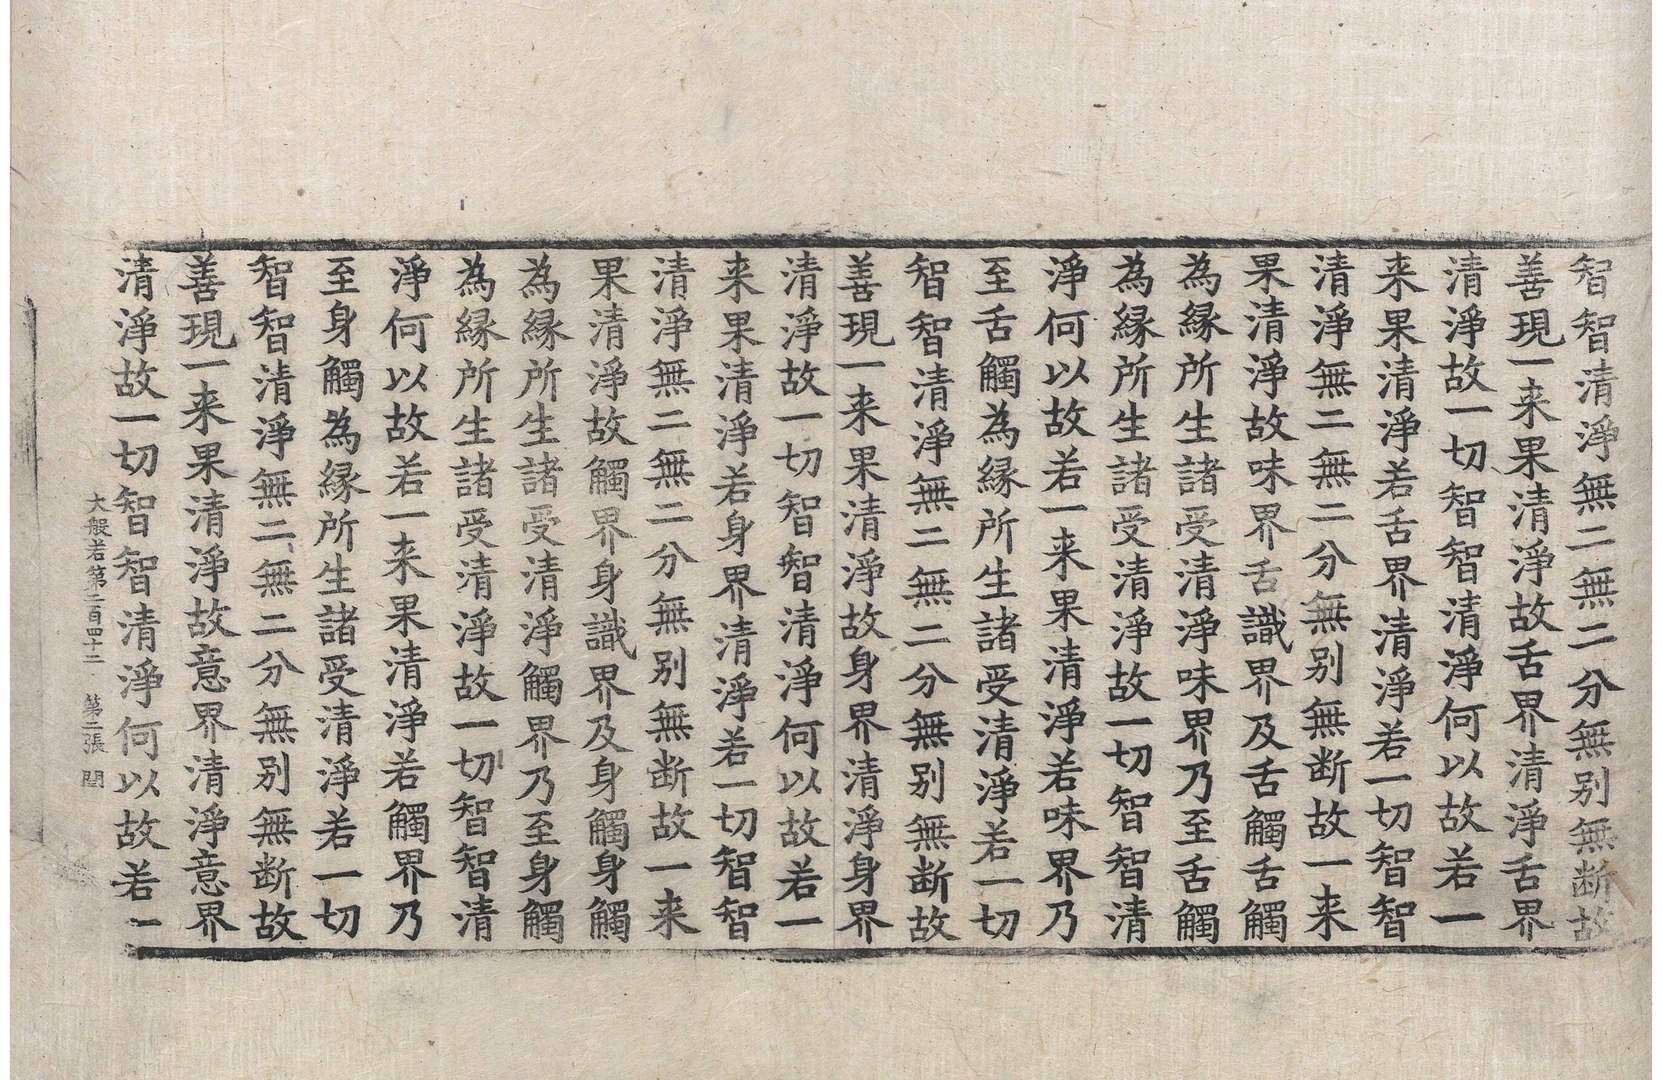 智智清淨無二無二分無别無断故
善現一来果清淨故舌界清淨舌界
清淨故一切智智清淨何以故若一
来果清淨若舌界清淨若一切智智
清淨無二無二分無别無断故一来
果清淨故味界舌識界及舌觸舌觸
為縁所生諸受清淨味界乃至舌觸
為縁所生諸受清淨故一切智智清
淨何以故若一来果清淨若味界乃
至舌觸為縁所生諸受清淨若一切
智智清淨無二無二分無别無断故
善現一来果清淨故身界清淨身界
清淨故一切智智清淨何以故若一
来果清淨若身界清淨若一切智智
清淨無二無二分無别無断故一来
果清淨故觸界身識界及身觸身觸
為縁所生諸受清淨觸界乃至身觸
為縁所生諸受清淨故一切智智清
淨何以故若一来果清淨若觸界乃
至身觸為縁所生諸受清淨若一切
智智清淨無二無二分無别無断故
善現一来果清淨故意界清淨意界
清淨故一切智智清淨何以故若一
大般若第二百四十二 第二張 閏